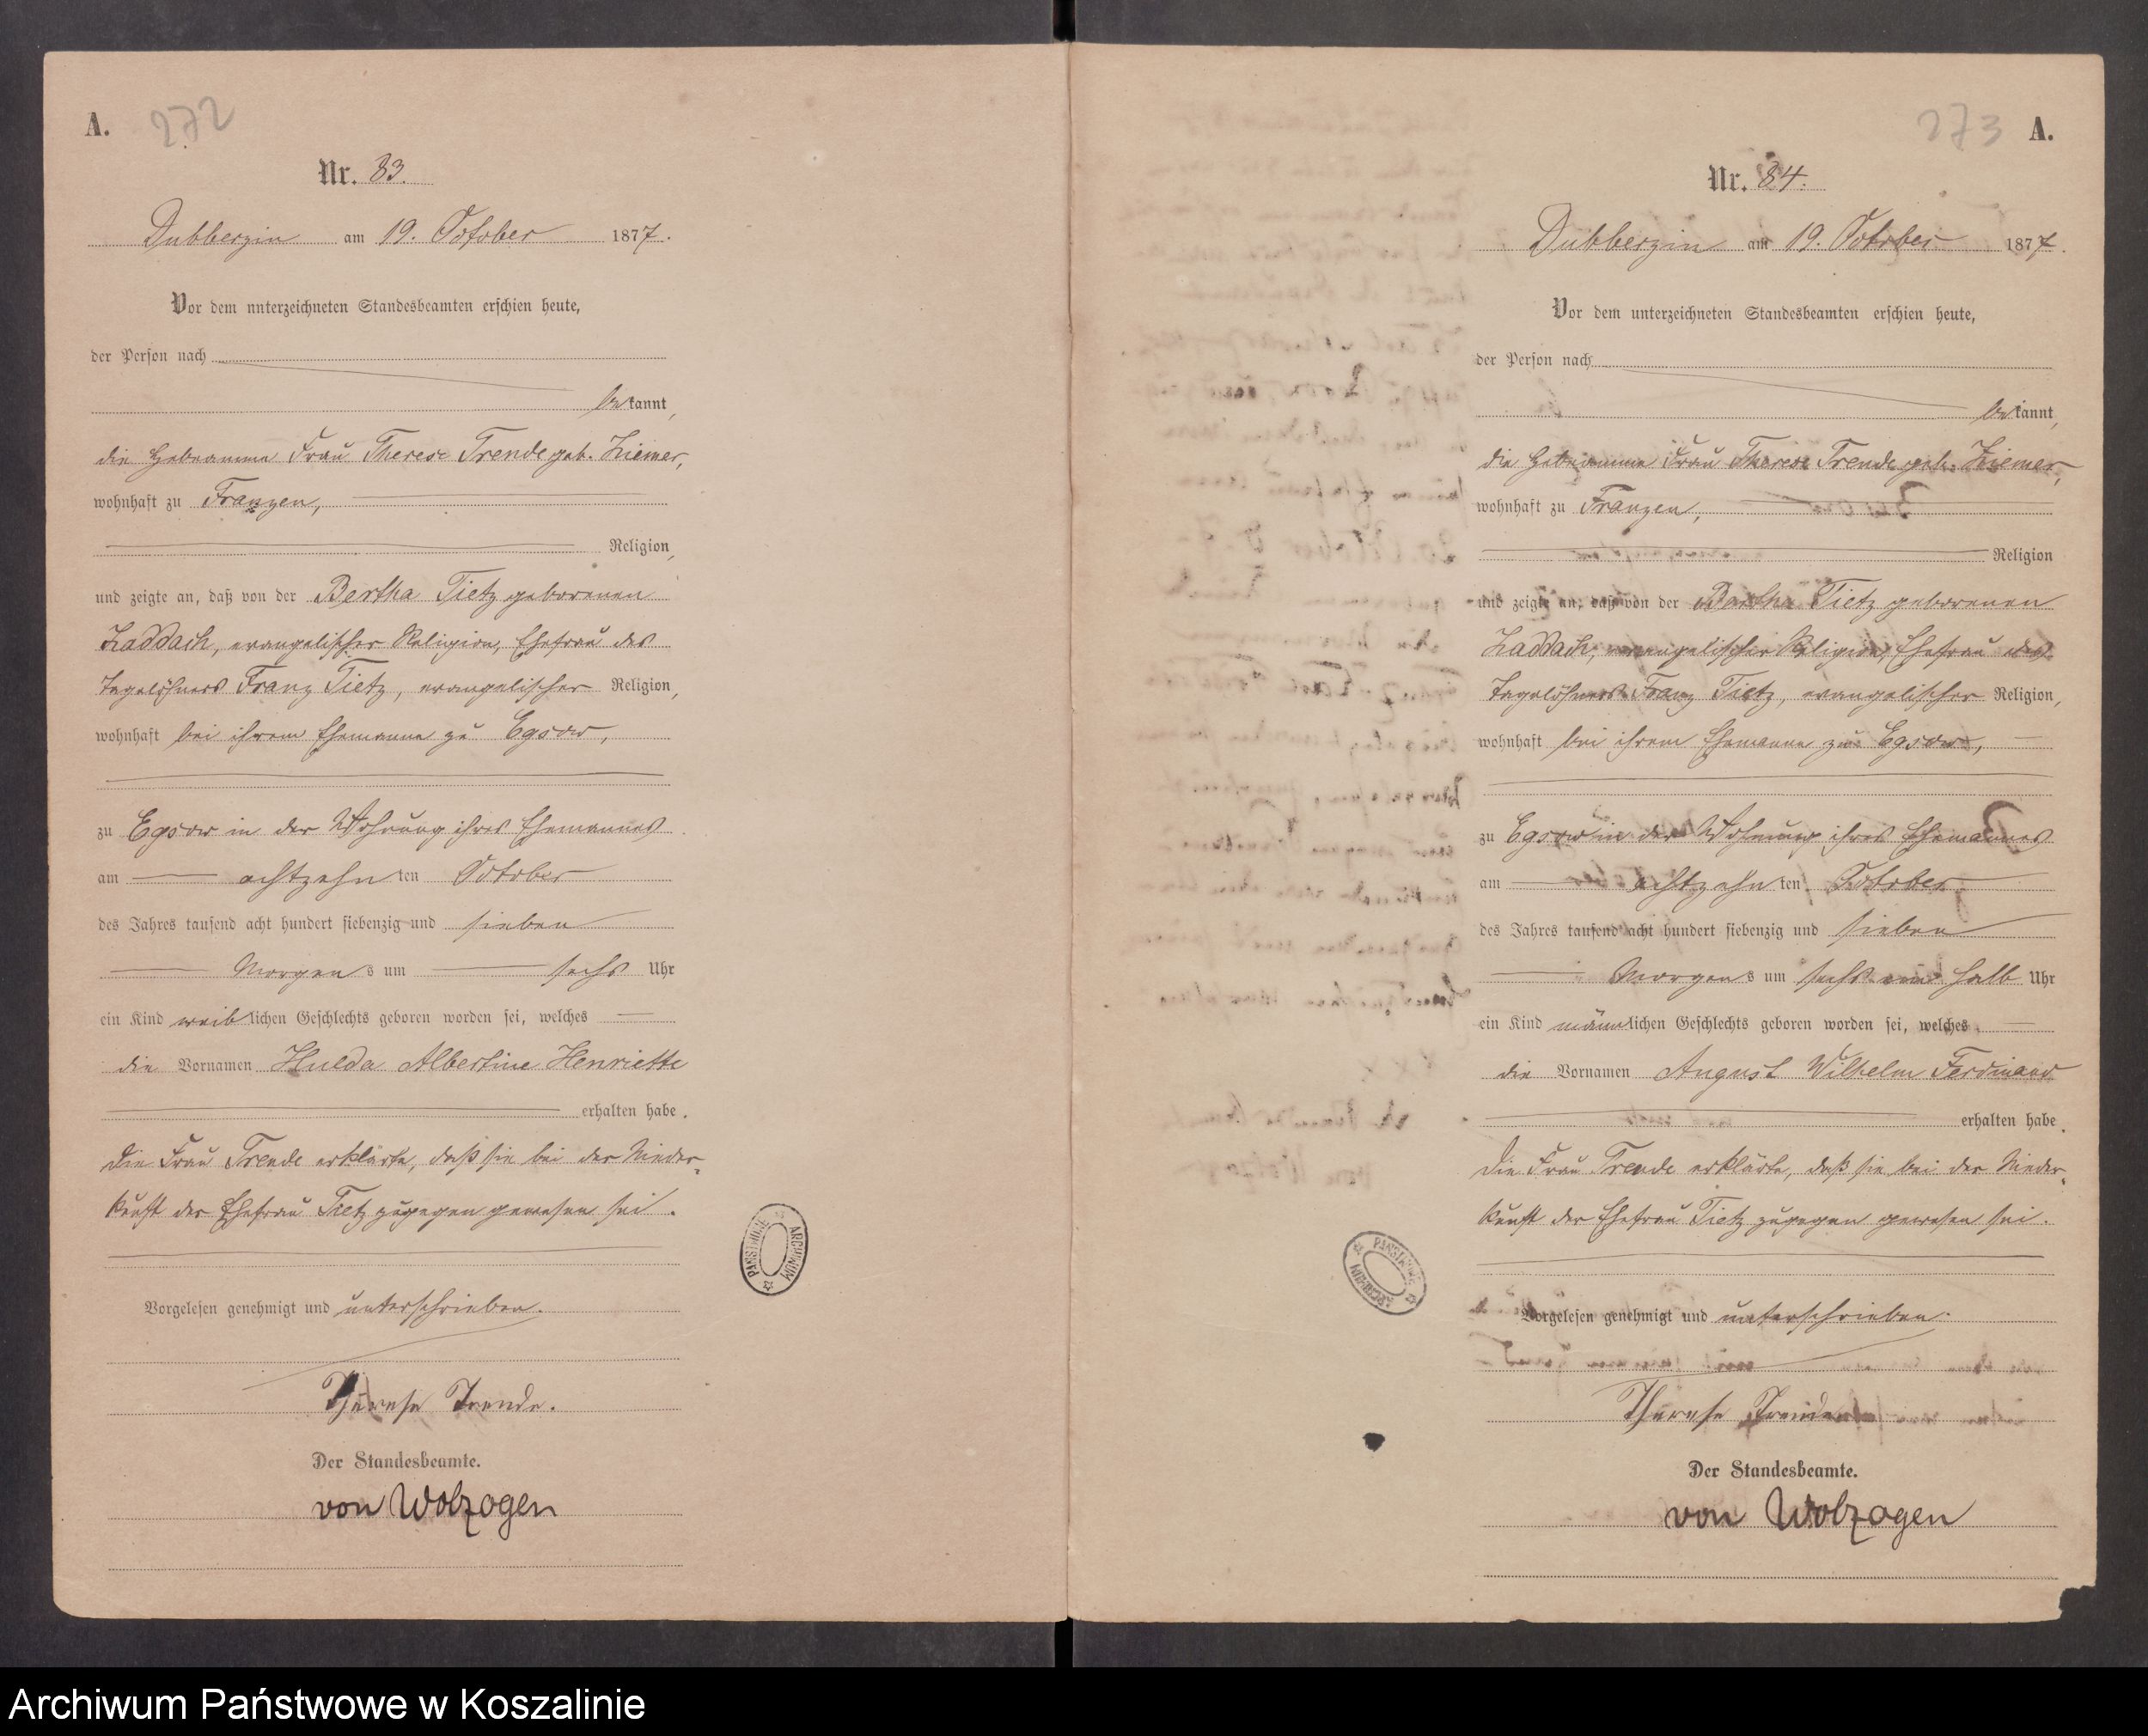 A.
272
Nr. 83.
Dubberzin am 19. October 1877.
Vor dem unterzeichneten Standesbeamten erschien heute,
der Person nach
bekannt,
die Hebeamme Frau Therese Trende geb. Ziemer,
wohnhaft zu Franzen,
Religion,
und zeigte an, daß von der Bertha Tietz geborenen
Zaddach, evangelischer Religion, Ehefrau des
Tagelöhners Franz Tietz, evangelischer Religion,
wohnhaft bei ihrem Ehemanne zu Egsow,
zu Egsow in der Wohnung ihres Ehemannes
am achtzehnten October
des Jahres tausend acht hundert siebenzig und sieben
Morgens um sechs Uhr
ein Kind weiblichen Geschlechts geboren worden sei, welches
die Vornamen Hulda Albertine Henriette
erhalten habe.
Die Frau Trende erklärte, daß sie bei der Nieder-
kunft der Ehefrau Tietz zugegen gewesen sei.
Vorgelesen genehmigt und unterschrieben.
Therese Trende.
Der Standesbeamte.
von Wolzogen
PAŃSTWOWE ARCHIWUM
273
A.
Nr. 84.
Dubberzin am 19. October 1877.
Vor dem unterzeichneten Standesbeamten erschien heute,
der Person nach
bekannt,
die Hebeamme Frau Therese Trende geb. Ziemer,
wohnhaft zu Franzen,
Religion
und zeigte an, daß von der Bertha Tietz geborenen
Zaddach, evangelischer Religion, Ehefrau des
Tagelöhners Franz Tietz, evangelischer Religion,
wohnhaft bei ihrem Ehemanne zu Egsow,
zu Egsow in der Wohnung ihres Ehemannes
am achtzehnten October
des Jahres tausend acht hundert siebenzig und sieben
Morgens um sechs ein halb Uhr
ein Kind männlichen Geschlechts geboren worden sei, welches
die Vornamen August Wilhelm Ferdinand
erhalten habe.
Die Frau Trende erklärte, daß sie bei der Nieder-
kunft der Ehefrau Tietz zugegen gewesen sei.
Vorgelesen genehmigt und unterschrieben.
Therese Trende
Der Standesbeamte.
von Wolzogen
PAŃSTWOWE ARCHIWUM
Archiwum Państwowe w Koszalinie